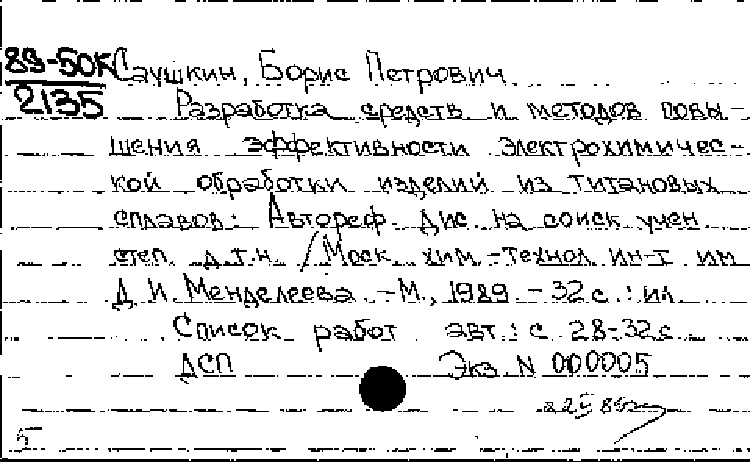 89-50К Саушкин, Борис Петрович
2135 Разработка средств и методов повы-
шения эффективности электрохимичес-
кой обработки изделий из титановых
сплавов: Автореф. дис. на соиск учен
степ. д.т.н. / Моск. хим.-технол ин-т им
Д. И. Менделеева. - М., 1989. - 32 с. : ил.
Список работ авт.: с. 28-32с.
ДСП Экз. N 000005
5